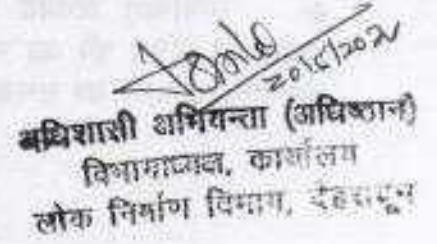 20/5/2021
अधिशासी अभियन्ता (अधिष्ठान)
विभागाध्यक्ष, कार्यालय
लोक निर्माण विभाग, देहरादून